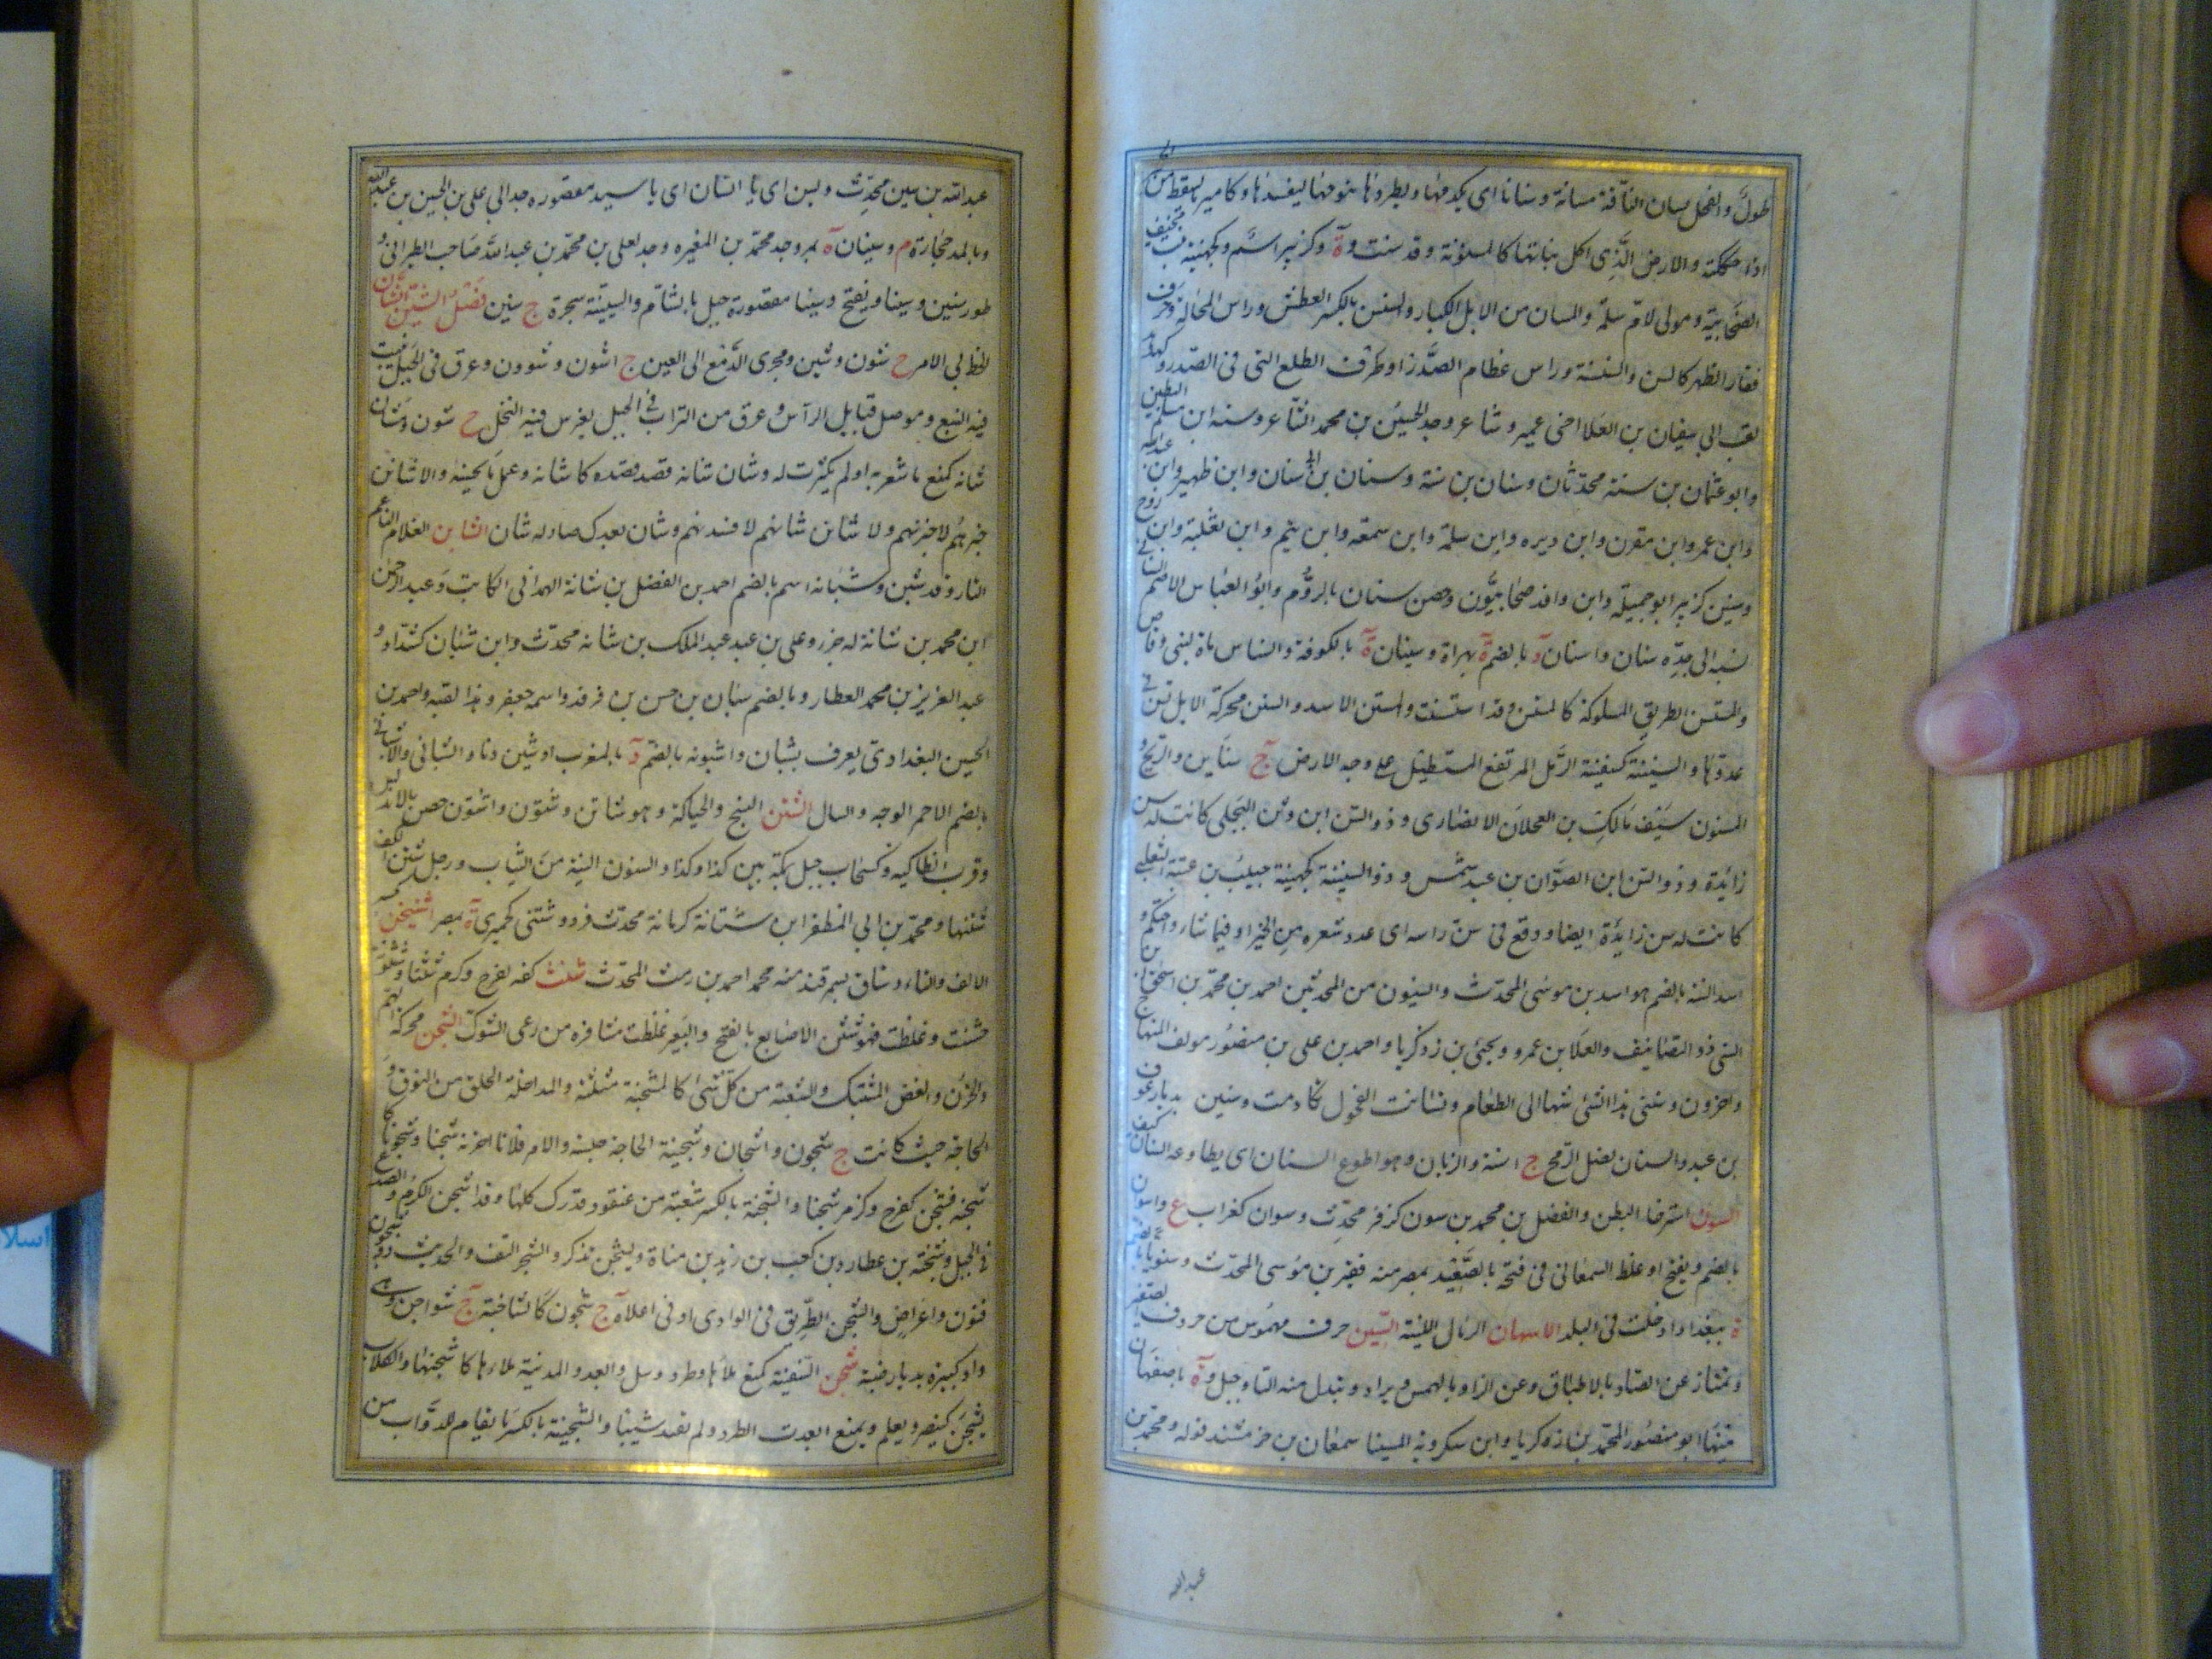 طولَّ والفحل يسان الناقة مسانة وسنانا اى يكدمها ويطردها تنوخها ليفسدها وكامير ما يسقط من
اذا حككته والارض الذى اكل نباتها كالمسنونة وقد سنت و ة وكزبير اسم وكجهينة بنت مخنف
الصحابية ومولى لام سلمة والمسان من الابل الكبار والسنسن بالكسر العطش وراس المحالة وحرف
فقار الظهر كالسن والسنسنة وراس عظام الصدر او طرف الضلع التى فى الصدر وكهدهد
لقب ابى سفيان بن العلا اخى عمرو شاعر وجد الحسين بن محمد الشاعر وسنة ابن مسلم البطين
وابو عثمان بن سنة محدثان وسنان بن سنة وسنان بن ابى سنان وابن ظهير وابن عبدالله
وابن عمرو ابن مقرن وابن وبره وابن سلمة وابن سمعه وابن تيم وابن ثعلبة وابن روح
وسنين كزبير ابو جميلة وابن واقد صحابيون وحصن سنان بالروم وابو العباس الاصم السنانى
نسبه الى جده سنان واسنان بالضم ة بهراة وسينان ة بالكوفة والسناس ماة لبنى وقاص
والمستسن الطريق المسلوكة كالمستن وقد استسنت واستن الاسد والسنن محركة الابل تستن فى
عدوها والسنينة كسفينة الرمل المرتفع المستطيل على وجه الارض ج سناين والريح و
المسنون سيف مالك بن العجلان الانصارى وذو السن ابن وثن البجلى كانت له سن
زايدة وذو السن ابن الصوان بن عبد شمس وذو السنينة كجهينة حبيب بن عتبة الثعلبى
كانت له سن زايدة ايضا ووقع فى سن راسه اى عدد شعره من الخير او فيما شاء واحتكم و
اسد السنه بالضم هو اسد بن موسى المحدث والسنيون من المحدثين احمد بن محمد بن اسحق بن
السنى ذو التصانيف والعلا بن عمرو ويحيى بن زكريا واحمد بن على بن منصور مولف المنهاج
واخرون وسننى هذا الشى شهانى الى الطعام وتسانت الفحول تكادمت وسنين بد بديار عوف
بن عبد والسنان نصل الرمح ج اسنة والزبان وهو اطوع السنان اى يطاوعه السنان كيف
السون استرخا البطن والفضل بن محمد بن سون كزفر محدث وسوان كغراب ع واسوان
بالضم ويفتح او غلط السمعانى فى فتحه بالصعيد بمصر منه فقير بن موسى المحدث وسنويا بالضم
ة ببغداد ادخلت فى البلد الاسهان الرمال اللينة السين حرف مهموس من حروف الصفير
وتمتاز عن الصاد بالاطباق وعن الزاء بالهمس ويزاد وتبدل منه التا وجبل و ة باصفهان
منها ابو منصور المحمد بن زكريا وابن سكرويه السينا سمعان بن خرشند قوله ومحمد بن
عبدالله
عبدالله بن سين محدث ويس اى يا انسان اى يا سيد مقصوره جد ابى على بن الحسين بن عبدالله
وبالمد حجارة م وسينان ة بمرو جد محمد بن المغيره وجد لعلى بن محمد بن عبدالله صاحب الطبرانى و
طور سنين وسينا ويفتح وسينا مقصورة جبل بالشام والسينة شجرة ج سنين فصل الشين الشان
الخطب الامر ج شون وشين ومجرى الدمع الى العين ج اشون وشوون وعرق فى الجبل ينبت
فيه النبع وموصل قبايل الراس وعرق من التراب فى الجبل يغرس فيه النخل ج شون وشان
شانه كمنع ما شعر به او لم يكترث له وشان شانه قصد قصده كاشانه وعمل ما يحسنه والاشانن
خبرهم لاخبرنهم ولا شانن شانهم لافسدنهم وشان بعدك صار له شان الشابن الغلام الناعم
التار وقد شبن وشبانه اسم بالضم احمد بن الفضل بن شبانة الهمدانى الكاتب وعبد الرحمن
ابن محمد بن شبانة له جزء وعلى بن عبد عبد الملك بن شبانه محدث وابن شبان كشداد و
عبد العزيز بن محمد العطار وبالضم شبان بن حسن بن فرقد واسمه جعفر وهذا لقبه واحمد بن
الحسين البغدادى يعرف بشبان واشبونه بالضم د بالمغرب او شبن دنا والشبانى والاشبانى
بالضم الاحمر الوجه والسبال الشتن النسج والحياكة وهو شاتن وشتون واشتون حصن بالاندلس
وقرب انطاكيه وكسحاب جبل بمكة بين كدا وكدا والشتون اللينة من الثياب ورجل شتن الكف
شثنها ومحمد بن ابى المظفر ابن شتانة كرمانة محدث فرد وشتنى كجمزى ة بمصر اشتيخن بكسر
الالف والتاء رستاق بسمرقند منه محمد احمد بن مت المحدث شثنت كفه كفرح وكرم شثنا وشثونة
خشنت وغلظت فهو شثن الاصابع بالفتح والبعير غلظت مشافره من رعى الشوك الشجن محركة الهم
والحزن والغصن المشتبك والشعبة من كل شى كالشجنة مثلثة والمتداخلة الخلق من النوق و
الحاجه حيث كانت ج شجون واشجان وشجنته الحاجة حبسته والامر فلانا احزنه شجنا وشجونا
شجنه فشجن كفرح وكرم شجنا والشجنة بالكسر شعبة من عنقود تدرك كلها وقد اشجن الكرم والصدع
فى الجبل وشجنة بن عطارد بن كعب بن زيد بن مناة وتشجن تذكر والشجر التف والحديث ذو شجون
فنون واغراض والشجن الطريق فى الوادى او فى اعلاه ج شجون كالشاجنة ج شواجن وهى
واد كبيرة بديار ضبة شحن السفينة كمنع ملاها وطرد وسل وابعد والمدينة ملاها كاشحنها والكلاب
تشحن كينصر ويعلم ويمنع ابعدت الطرد ولم تصد شيئا والشحنة بالكسر ما يقام للدواب من